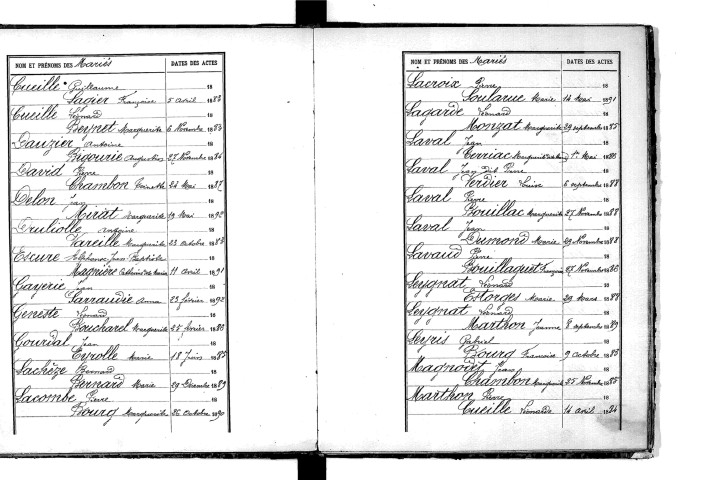 NOM ET PRÉNOMS DES Mariés DATES DES ACTES
Cueille Guillaume 18
Lagier Françoise 5 avril 1883
Cueille Léonard 18
Beynet Marguerite 6 Novembre 1883
Dauzier Antoine 18
Bigourie 27 Novembre 1886
David Pierre 18
Chambon Toinette 24 Mai 1887
Delon Jean 18
Miriat Marguerite 19 Mai 1892
Druliolle Antoine 18
Vareille Marguerite 23 octobre 1883
Escure Alphonse Jean-Baptiste 18
Magnière Catherine dite Marie 11 avril 1891
Gayerie Jean 18
Sarraudie Anna 23 février 1892
Geneste Léonard 18
Boucharel Marguerite 25 février 1886
Gourdal Jean 18
Eyrolle Marie 18 Juin 1885
Lachèze Bernard 18
Bernard Marie 29 Décembre 1889
Lacombe Pierre 18
Bourg Marguerite 26 octobre 1890
NOM ET PRÉNOMS DES Mariés DATES DES ACTES
Lacroix Pierre 18
Soularue Marie 14 Mai 1891
Lagarde Léonard 18
Monzat Marguerite 29 septembre 1885
Laval Jean 18
Cerriac Marguerite 1er Mai 1886
Laval Jean dit Pierre 18
Verdier Louise 6 septembre 1888
Laval Pierre 18
Bouillac Marguerite 27 Novembre 1888
Laval Jean 18
Dumond Marie 29 Novembre 1888
Lavaud Pierre 18
Bouillaguet Françoise 27 Novembre 1886
Leygnat Léonard 18
Estorges Marie 29 Mars 1887
Leygnat Léonard 18
Marthon Jeanne 8 septembre 1889
Leyris Gabriel 18
Bourg Francoise 9 octobre 1883
Magnoult Jean 18
Chambon Marguerite 25 Novembre 1885
Marthon Pierre 18
Cueille Léonarde 14 avril 1884